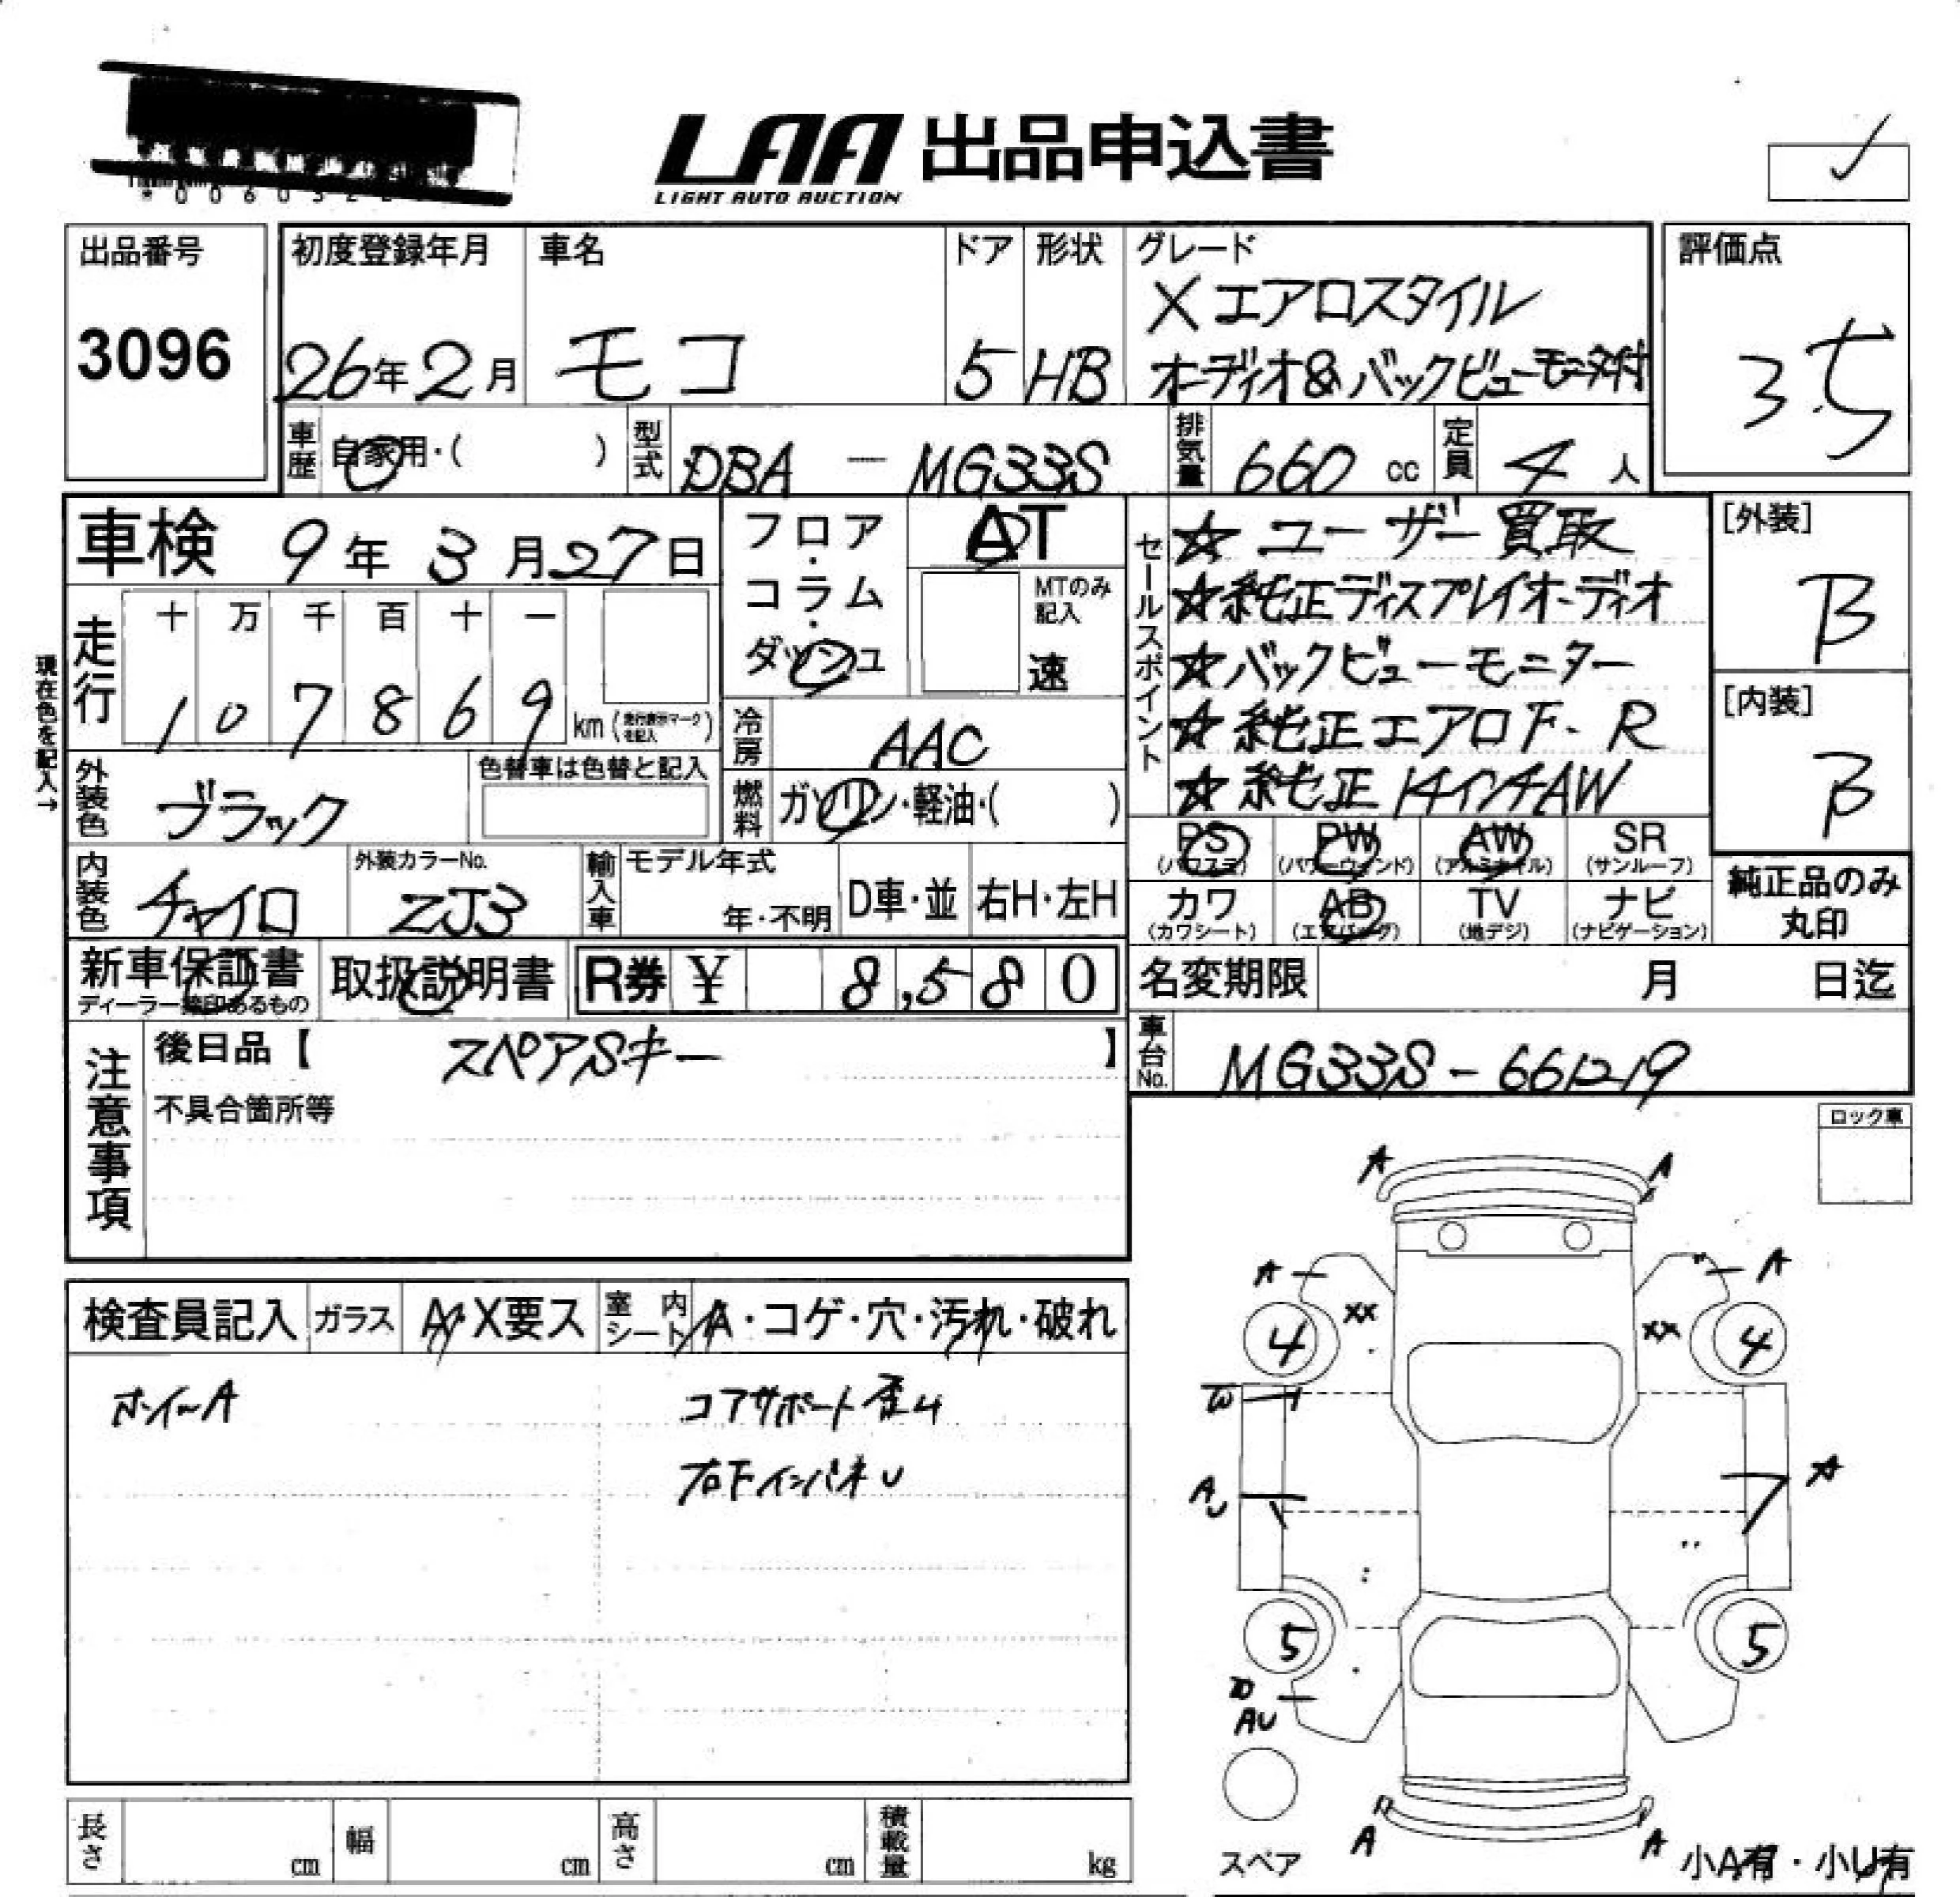 *006032
LAA 出品申込書
LIGHT AUTO AUCTION
出品番号
3096
初度登録年月
26年2月
車名
モコ
ドア
5
形状
HB
グレード
Xエアロスタイル
オーディオ&バックビューモニタ付
評価点
3.5
車歴 自家用・( )
型式 DBA - MG33S
排気量 660 cc
定員 4 人
車検 9年3月27日
フロア・コラム・ダッシュ
AT
MTのみ記入
速
セールスポイント
☆ユーザー買取
☆純正ディスプレイオーディオ
☆バックビューモニター
☆純正エアロF・R
☆純正14インチAW
[外装]
B
[内装]
B
現在色を記入→
走行
十 万 千 百 十 一
1 0 7 8 6 9 km (走行表示マークを記入)
冷房 AAC
外装色 ブラック
色替車は色替と記入
燃料 ガソリン・軽油・( )
内装色 チャイロ
外装カラーNo.
ZJ3
輸入車 モデル年式
年・不明
D車・並
右H・左H
PS (パワステ)
PW (パワーウィンド)
AW (アルミホイル)
SR (サンルーフ)
カワ (カワシート)
AB (エアバッグ)
TV (地デジ)
ナビ (ナビゲーション)
純正品のみ
丸印
新車保証書
ディーラー捺印あるもの
取扱説明書
R券 ¥ 8,580
名変期限 月 日迄
注意事項
後日品【 スペアSキー 】
不具合箇所等
車台No. MG33S-661219
ロック車
検査員記入
ガラス A・X要ス
室内シート A・コゲ・穴・汚れ・破れ
ホイールA
コアサポート歪ム
右下インパネU
A A
A A
XX XX
4 4
W
A
A
U
5 5
AU
A A
スペア
小A有・小U有
長さ cm
幅 cm
高さ cm
積載量 kg